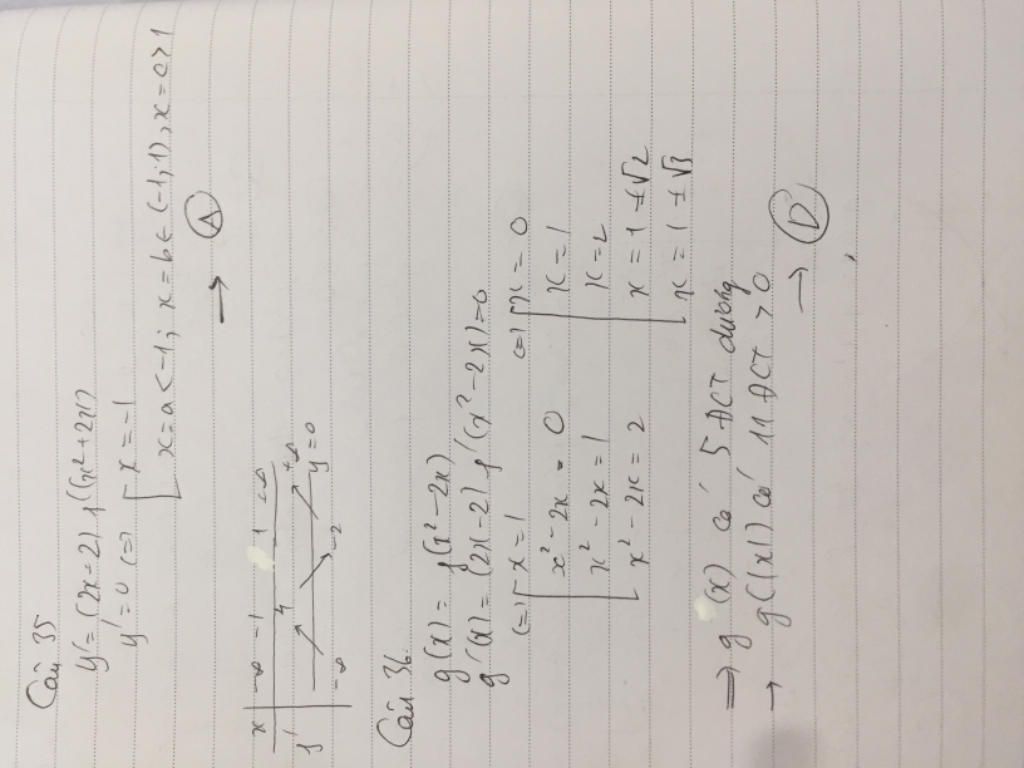 Câu 35
y' = (2x-2) f'(x²+2x)
y' = 0 (=) [ x = -1
[ x = a < -1 ; x = b ∈ (-1;1), x = c > 1
→ (A)
x -∞ -1 1 +∞
f' -∞ 4 -2 +∞ y=0
Câu 36.
g(x) = f(x²-2x)
g'(x) = (2x-2) f'(x²-2x) = 0
(=) [ x = 1 (=) [ x = 0
x²-2x = 0 x = 1
x²-2x = 1 x = 2
x²-2x = 2 x = 1 ±√2
x = 1 ±√3
=> g(x) có 5 ĐCT dương
→ g(|x|) có 11 ĐCT > 0
→ (D)